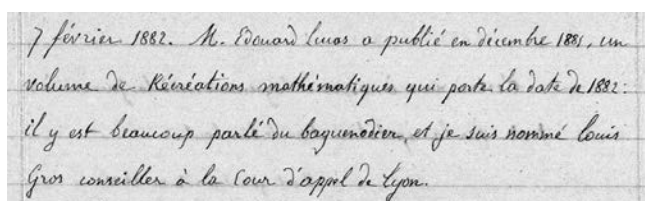 7 février 1882. M. Edouard Lucas a publié en décembre 1881, un
volume de Récréations mathématiques qui porte la date de 1882:
il y est beaucoup parlé du baguenodier, et je suis nommé Louis
Gros conseiller à la Cour d'appel de Lyon.